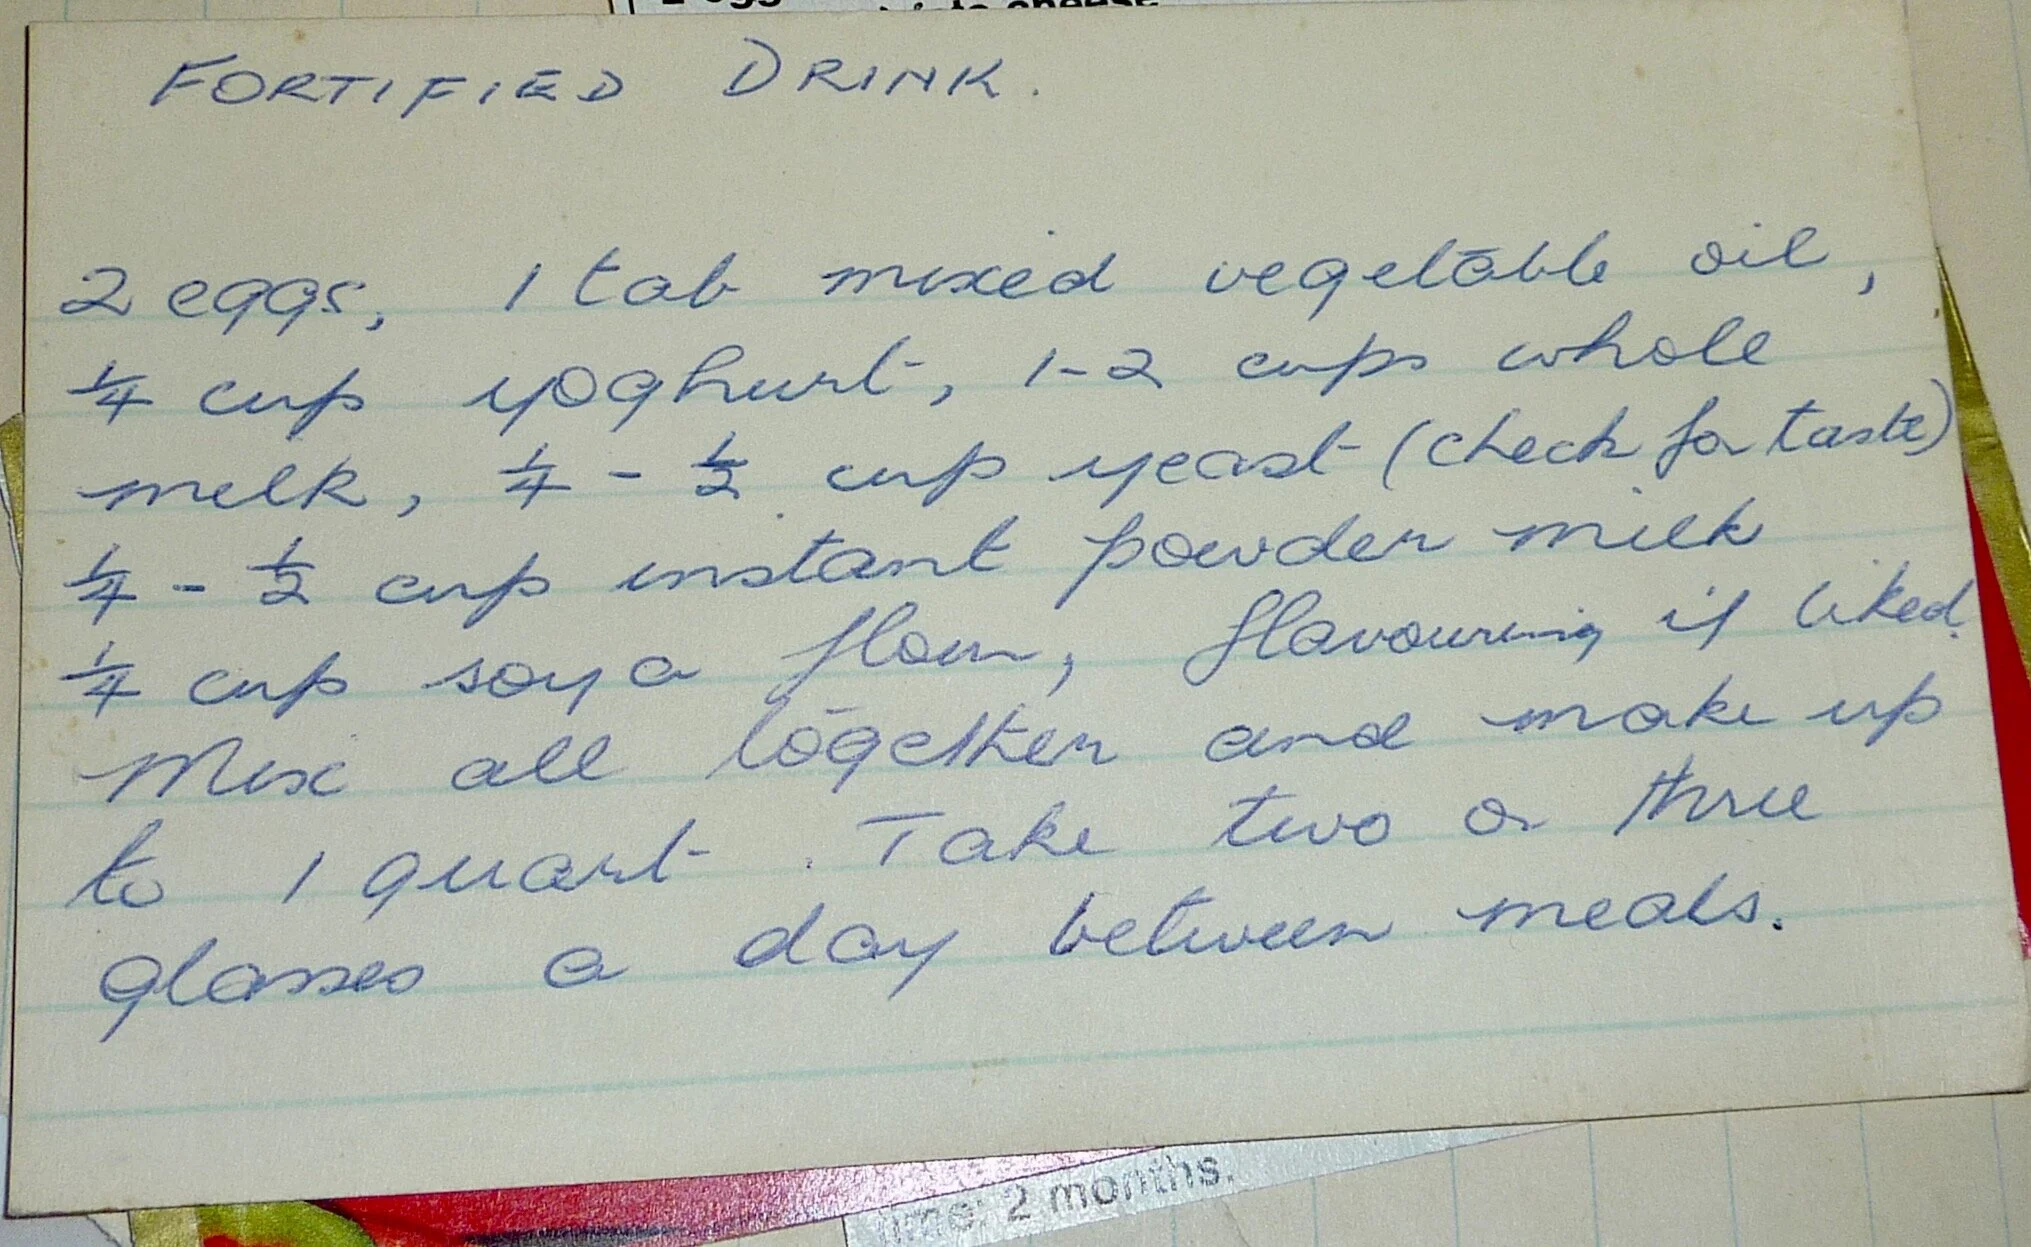 FORTIFIED DRINK.
2 eggs, 1 tab mixed vegetable oil,
1/4 cup yoghurt, 1-2 cups whole
milk, 1/4 - 1/2 cup yeast (check for taste)
1/4 - 1/2 cup instant powder milk
1/4 cup soya flour, flavouring if liked.
Mix all together and make up
to 1 quart. Take two or three
glasses a day between meals.
time: 2 months.